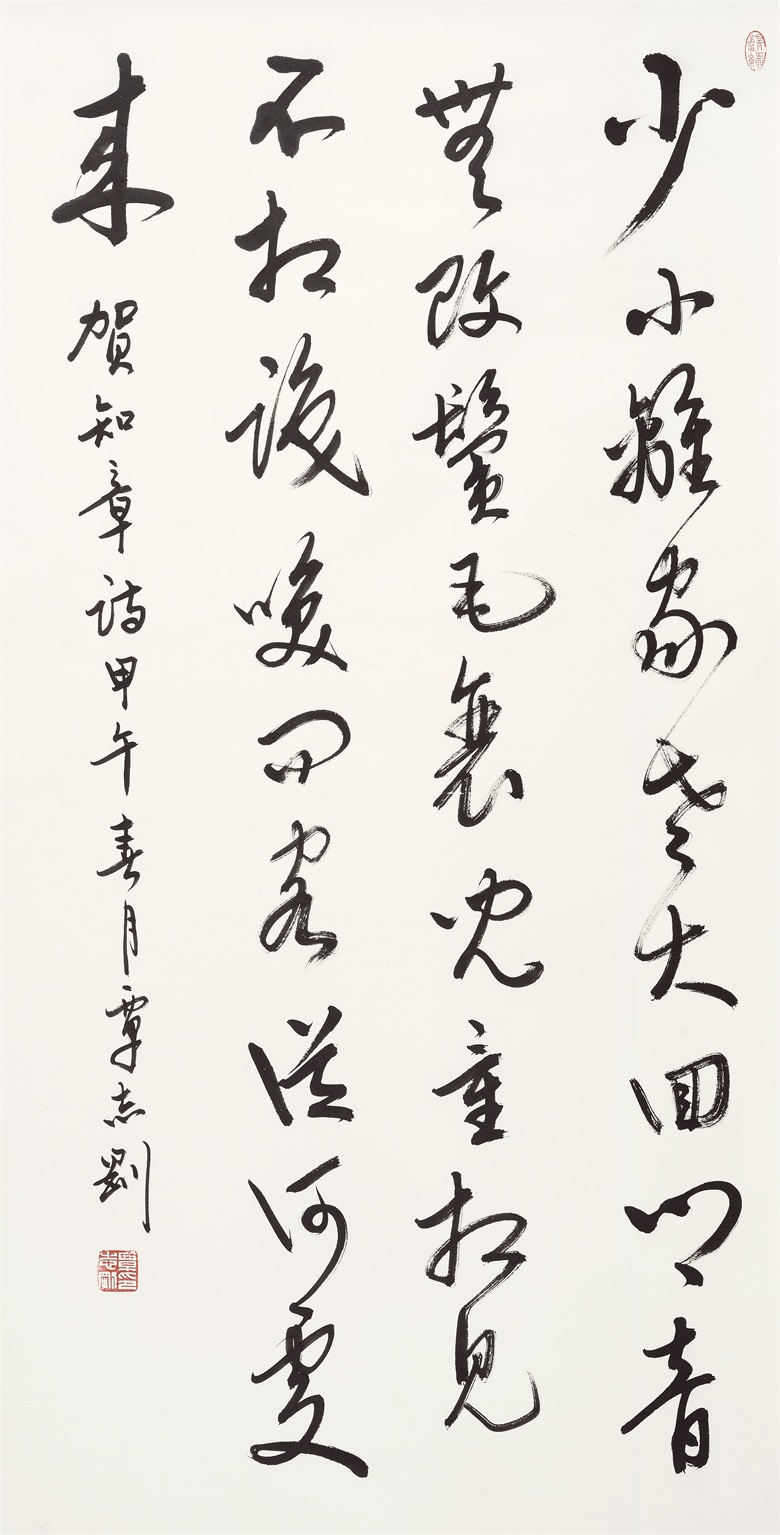 少小離家老大回鄉音
無改鬢毛衰兒童相見
不相識咲問客從何處
来 賀知章詩甲午春月覃志剛
覃印志剛